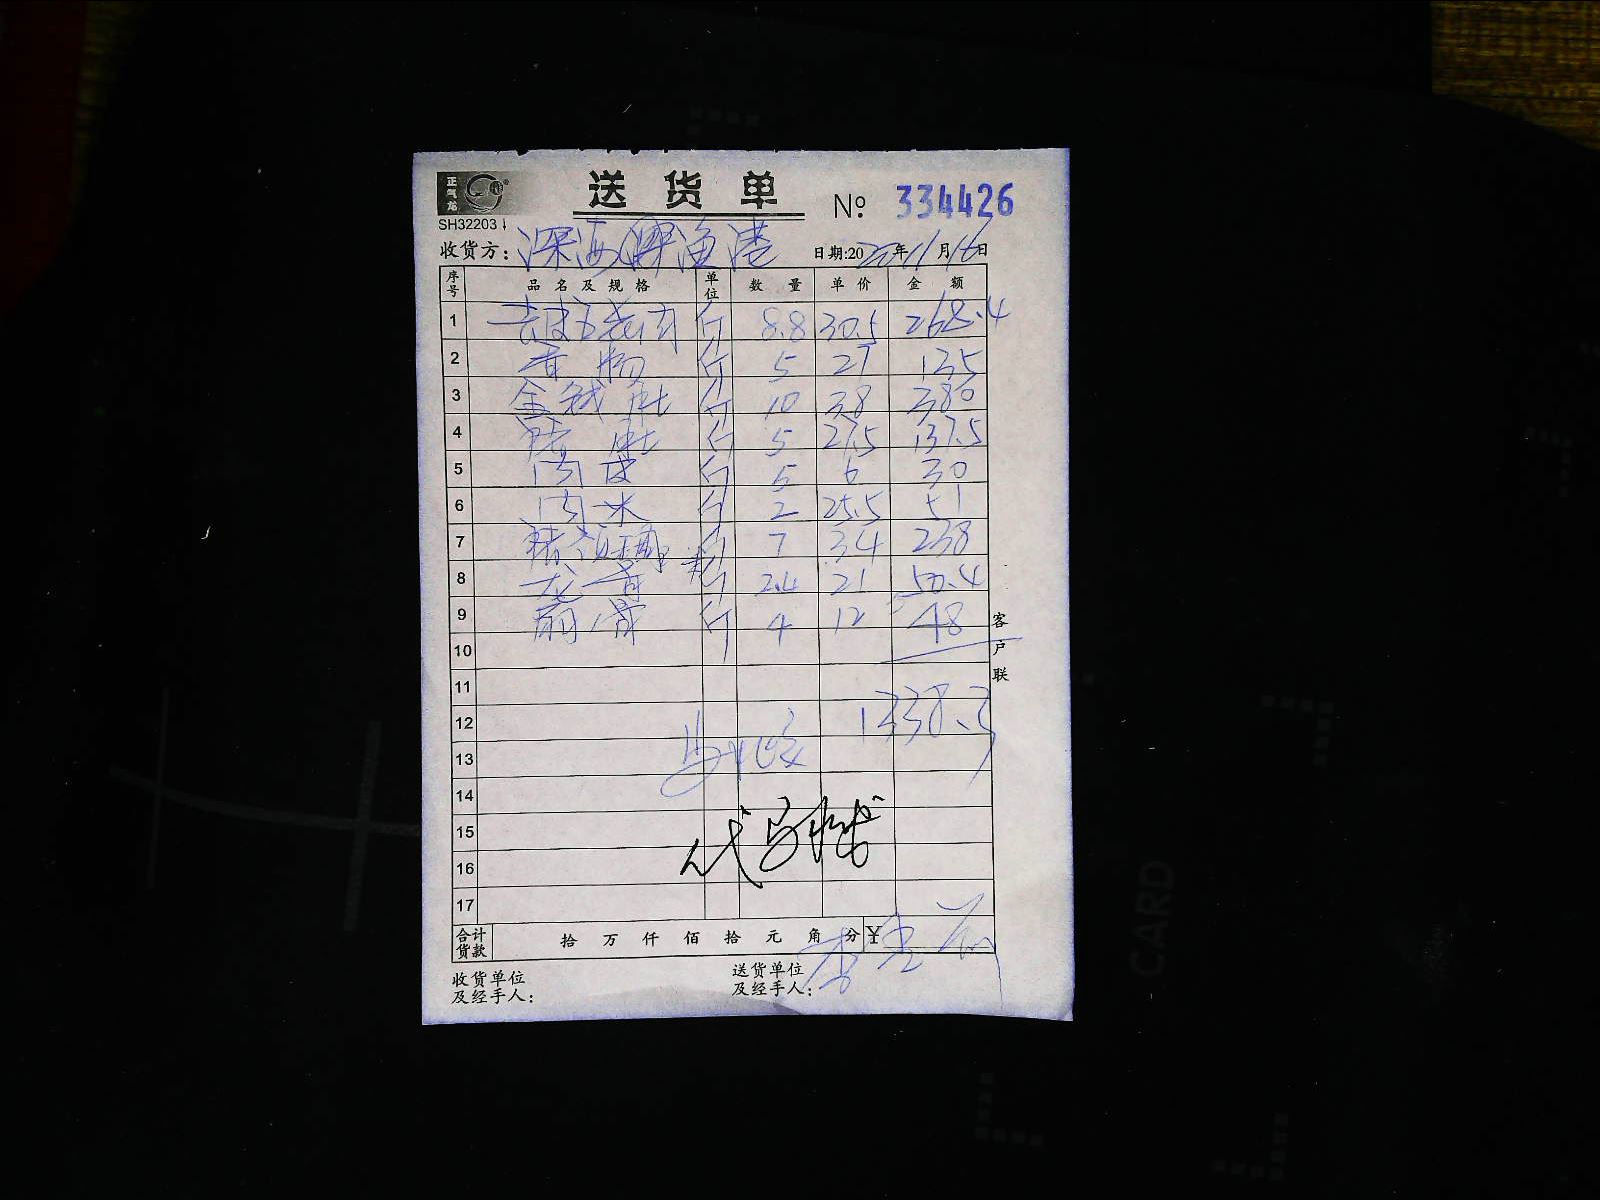 正气龙
送货单 № 334426
SH32203
收货方: 深海鲜渔港 日期:2022年11月16日
序号 品名及规格 单位 数量 单价 金额
1 去皮五花肉 斤 8.8 30.5 268.4
2 斤 5 27 135
3 金钱 斤 10 38 380
4 猪 斤 5 27.5 137.5
5 肉皮 斤 5 6 30
6 肉 斤 2 25.5 51
7 猪 斤 7 34 238
8 龙骨 斤 2.4 21 50.4
9 扇骨 斤 4 12 48
10
11
12 1338.3
13
14
15
代
16
17
合计货款 拾 万 仟 佰 拾 元 角 分 ¥
收货单位及经手人:
送货单位及经手人: 李
客户联